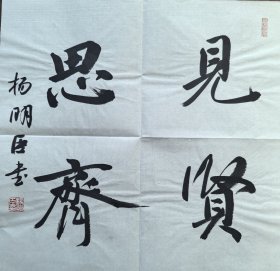 見賢
思齊
杨明臣书